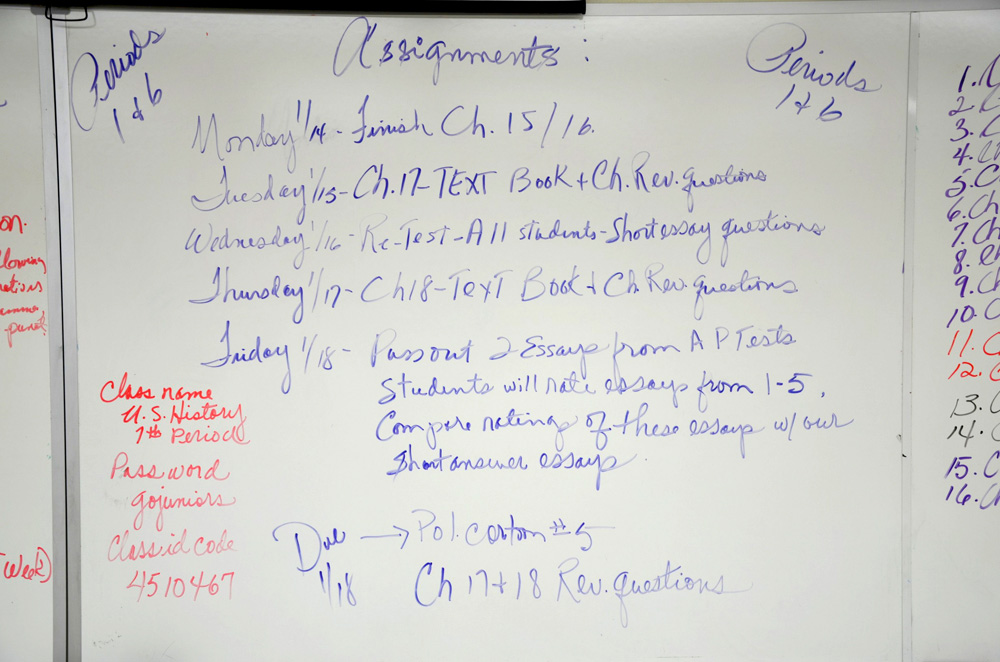 Periods
1 & 6
Assignments:
Periods
1 & 6
Monday 1/14 - Finish Ch. 15/16.
Tuesday 1/15 - Ch. 17 - TEXT Book + Ch. Rev. questions
Wednesday 1/16 - Re-Test - All students - Short essay questions
Thursday 1/17 - Ch 18 - TexT Book + Ch. Rev. questions
Friday 1/18 - Pass out 2 Essays from AP Tests
Students will rate essays from 1-5.
Compare ratings of these essays w/ our
Short answer essays.
Class name
U.S. History
7th Period
Password
gojuniors
Class id code
4510467
Due → Pol. cartoon #5
1/18 Ch 17 + 18 Rev. questions
on.
Week)
1.
2.
3. C
4. Ch
5. C
6. Ch
7. Ch
8. Ch
9. Ch
10. C
11. C
12.
13.
14.
15. C
16. Ch